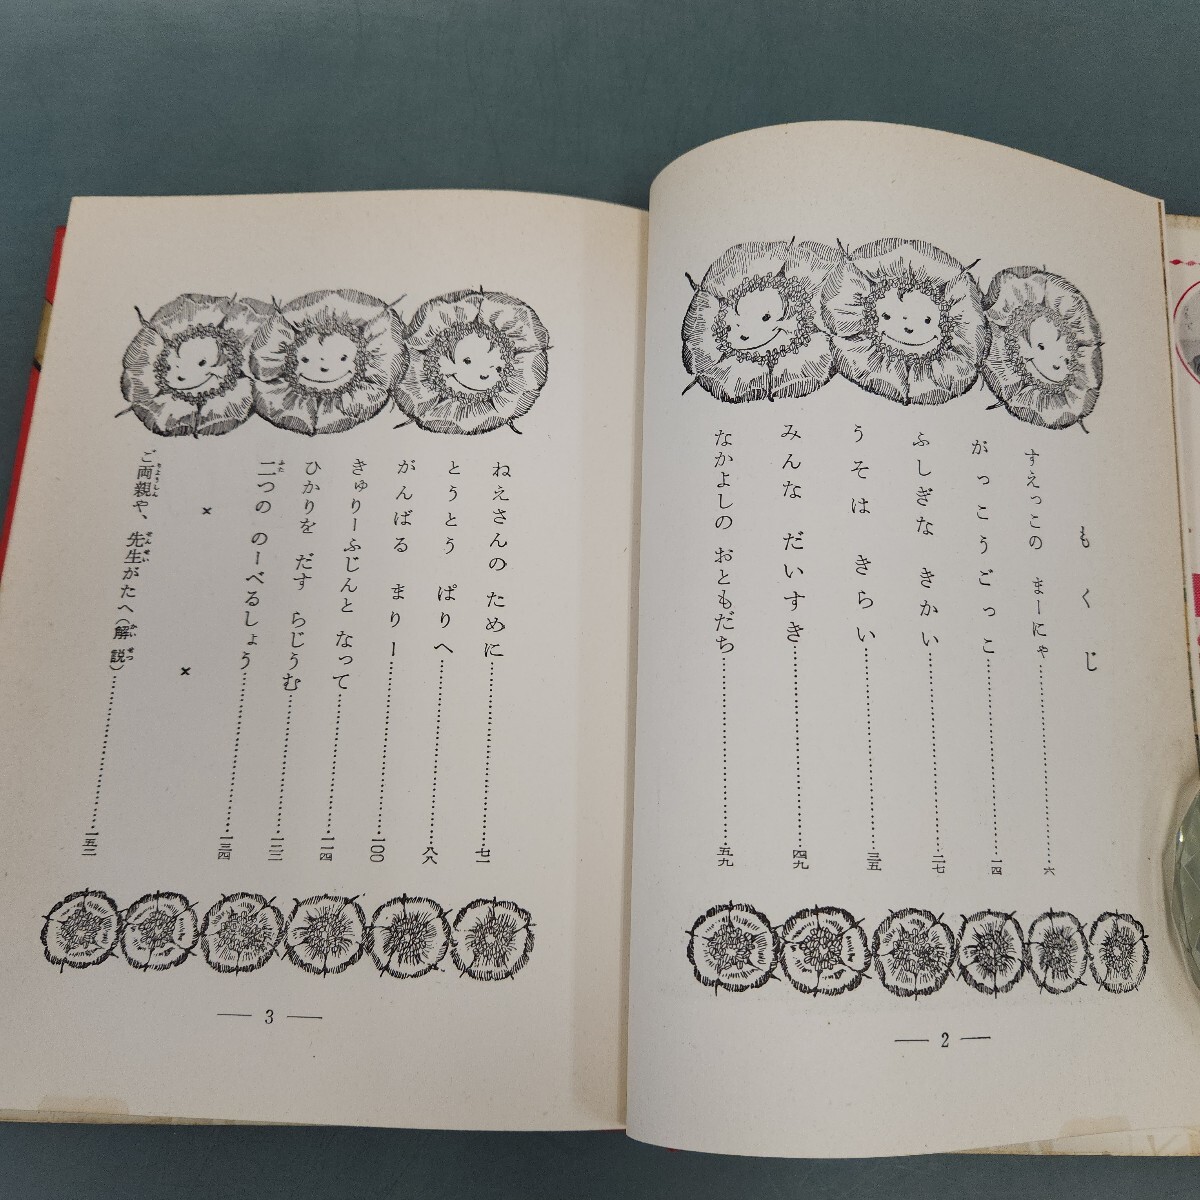 もくじ
すえっこの まーにゃ……六
がっこうごっこ……一四
ふしぎな きかい……二七
うそは きらい……三五
みんな だいすき……四九
なかよしの おともだち……五九
— 2 —
ねえさんの ために……七一
とうとう ぱりへ……八八
がんばる まりー……一〇〇
きゅりーふじんと なって……一一四
ひかりを だす らじうむ……一二三
二つの のーべるしょう……一三四
× ×
ご両親や、先生がたへ(解説)……一五二
— 3 —